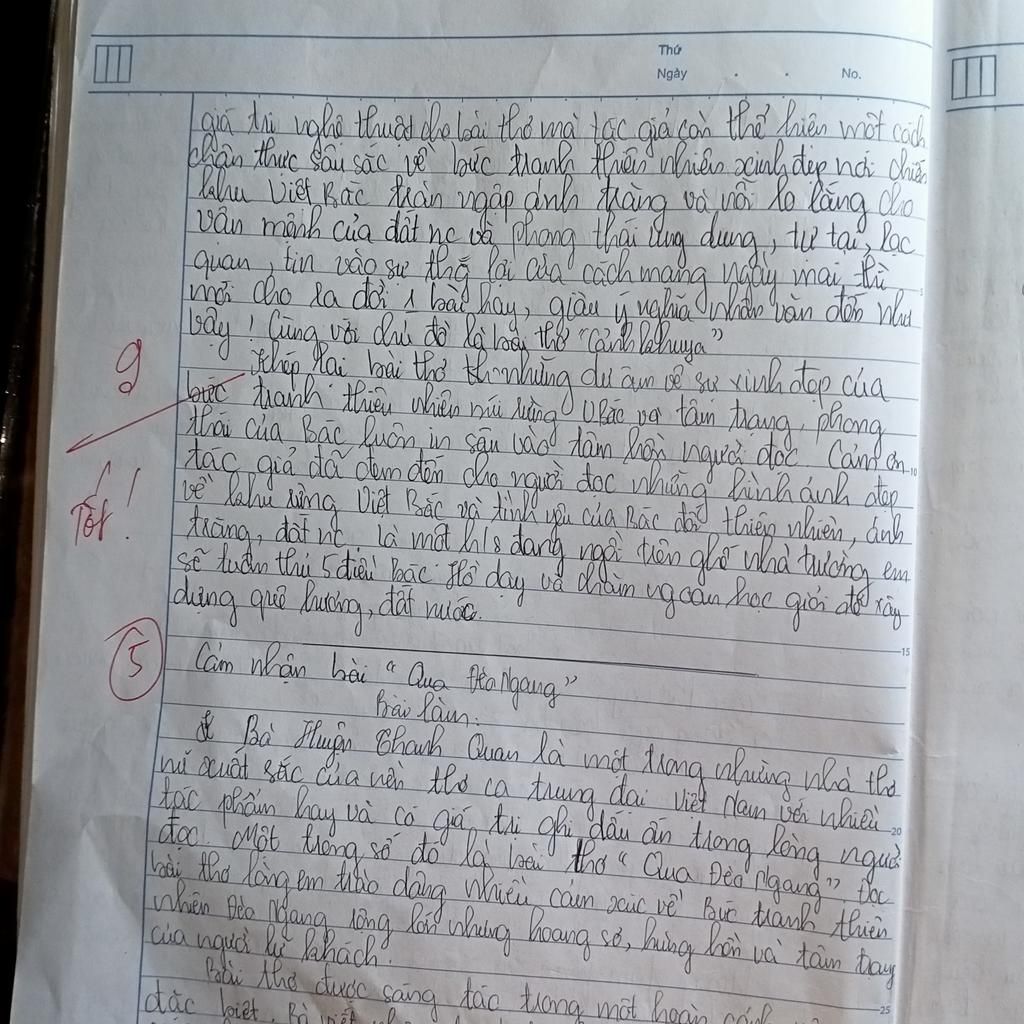 Thứ
Ngày . . No.
giá trị nghệ thuật cho bài thơ mà tác giả còn thể hiện một cách
chân thực sâu sắc về bức tranh thiên nhiên xinh đẹp nơi chiến
khu Việt Bắc tràn ngập ánh trăng và nỗi lo lắng cho
vận mệnh của đất nc và phong thái ung dung, tự tại, lạc
quan, tin vào sự thắg lợi của cách mạng ngày mai thì
mới cho ra đời 1 bài hay, giàu ý nghĩa nhân văn đến như
vậy! Cùng với chủ đề là bài thơ "Cảnh khuya"
Khép lại bài thơ th những dư âm về sự xinh đẹp của
bức tranh thiên nhiên núi rừng VBắc và tâm trạng, phong
thái của Bác luôn in sâu vào tâm hồn người đọc. Cảm ơn
tác giả đã đem đến cho người đọc những hình ảnh đẹp
về khu rừng Việt Bắc và tình yêu của Bác đối thiên nhiên, ánh
trăng, đất nc. Là một h/s đang ngồi trên ghế nhà trường em
sẽ tuân thủ 5 điều Bác Hồ dạy và chăm ngoan học giỏi để xây
dựng quê hương, đất nước.
9
Tốt!
5
Cảm nhận bài "Qua Đèo Ngang"
Bài làm:
Bà Huyện Thanh Quan là một trong những nhà thơ
nữ xuất sắc của nền thơ ca trung đại Việt Nam với nhiều
tác phẩm hay và có giá trị ghi dấu ấn trong lòng người
đọc. Một trong số đó là bài thơ "Qua Đèo Ngang". Đọc
bài thơ lòng em trào dâng nhiều cảm xúc về bức tranh thiên
nhiên Đèo Ngang rộng lớn nhưng hoang sơ, hùng hồn và tâm trạng
của người lữ khách.
Bài thơ được sáng tác trong một hoàn cảnh
đặc biệt. Bà
5
10
15
20
25